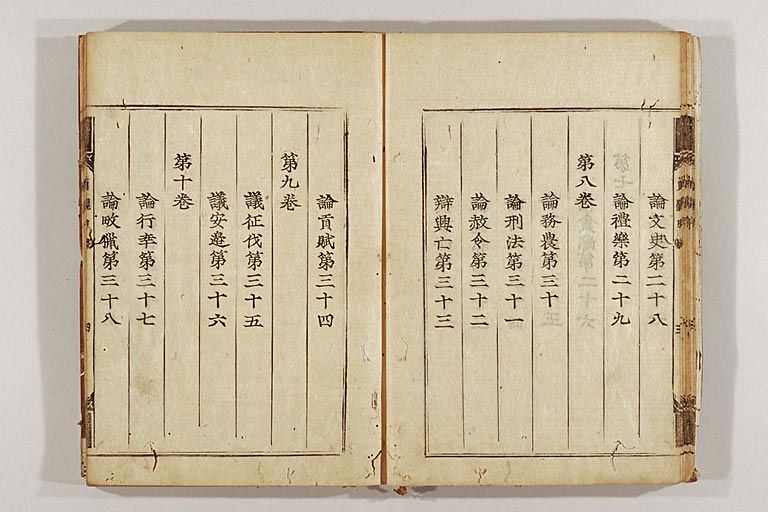 論文史第二十八
論禮樂第二十九
第八卷
論務農第三十
論刑法第三十一
論赦令第三十二
辯興亡第三十三
論貢賦第三十四
第九卷
議征伐第三十五
議安邉第三十六
第十卷
論行幸第三十七
論畋獵第三十八
四
三